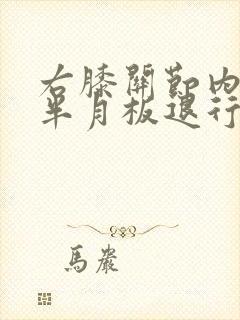 右膝關節內
半月板退行
馬嚴